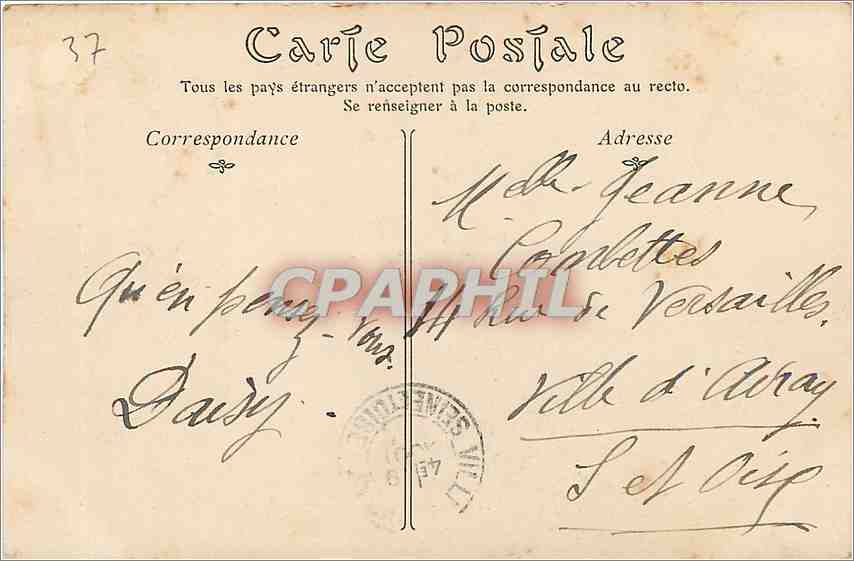 37
Carte Postale
Tous les pays étrangers n'acceptent pas la correspondance au recto.
Se renseigner à la poste.
Correspondance
Qu'en pensez-vous.
Daisy.
Adresse
Melle Jeanne
Combettes
14 Rue de Versailles.
Ville d'Avray
S et Oise
CPAPHIL
SEINE ET OISE